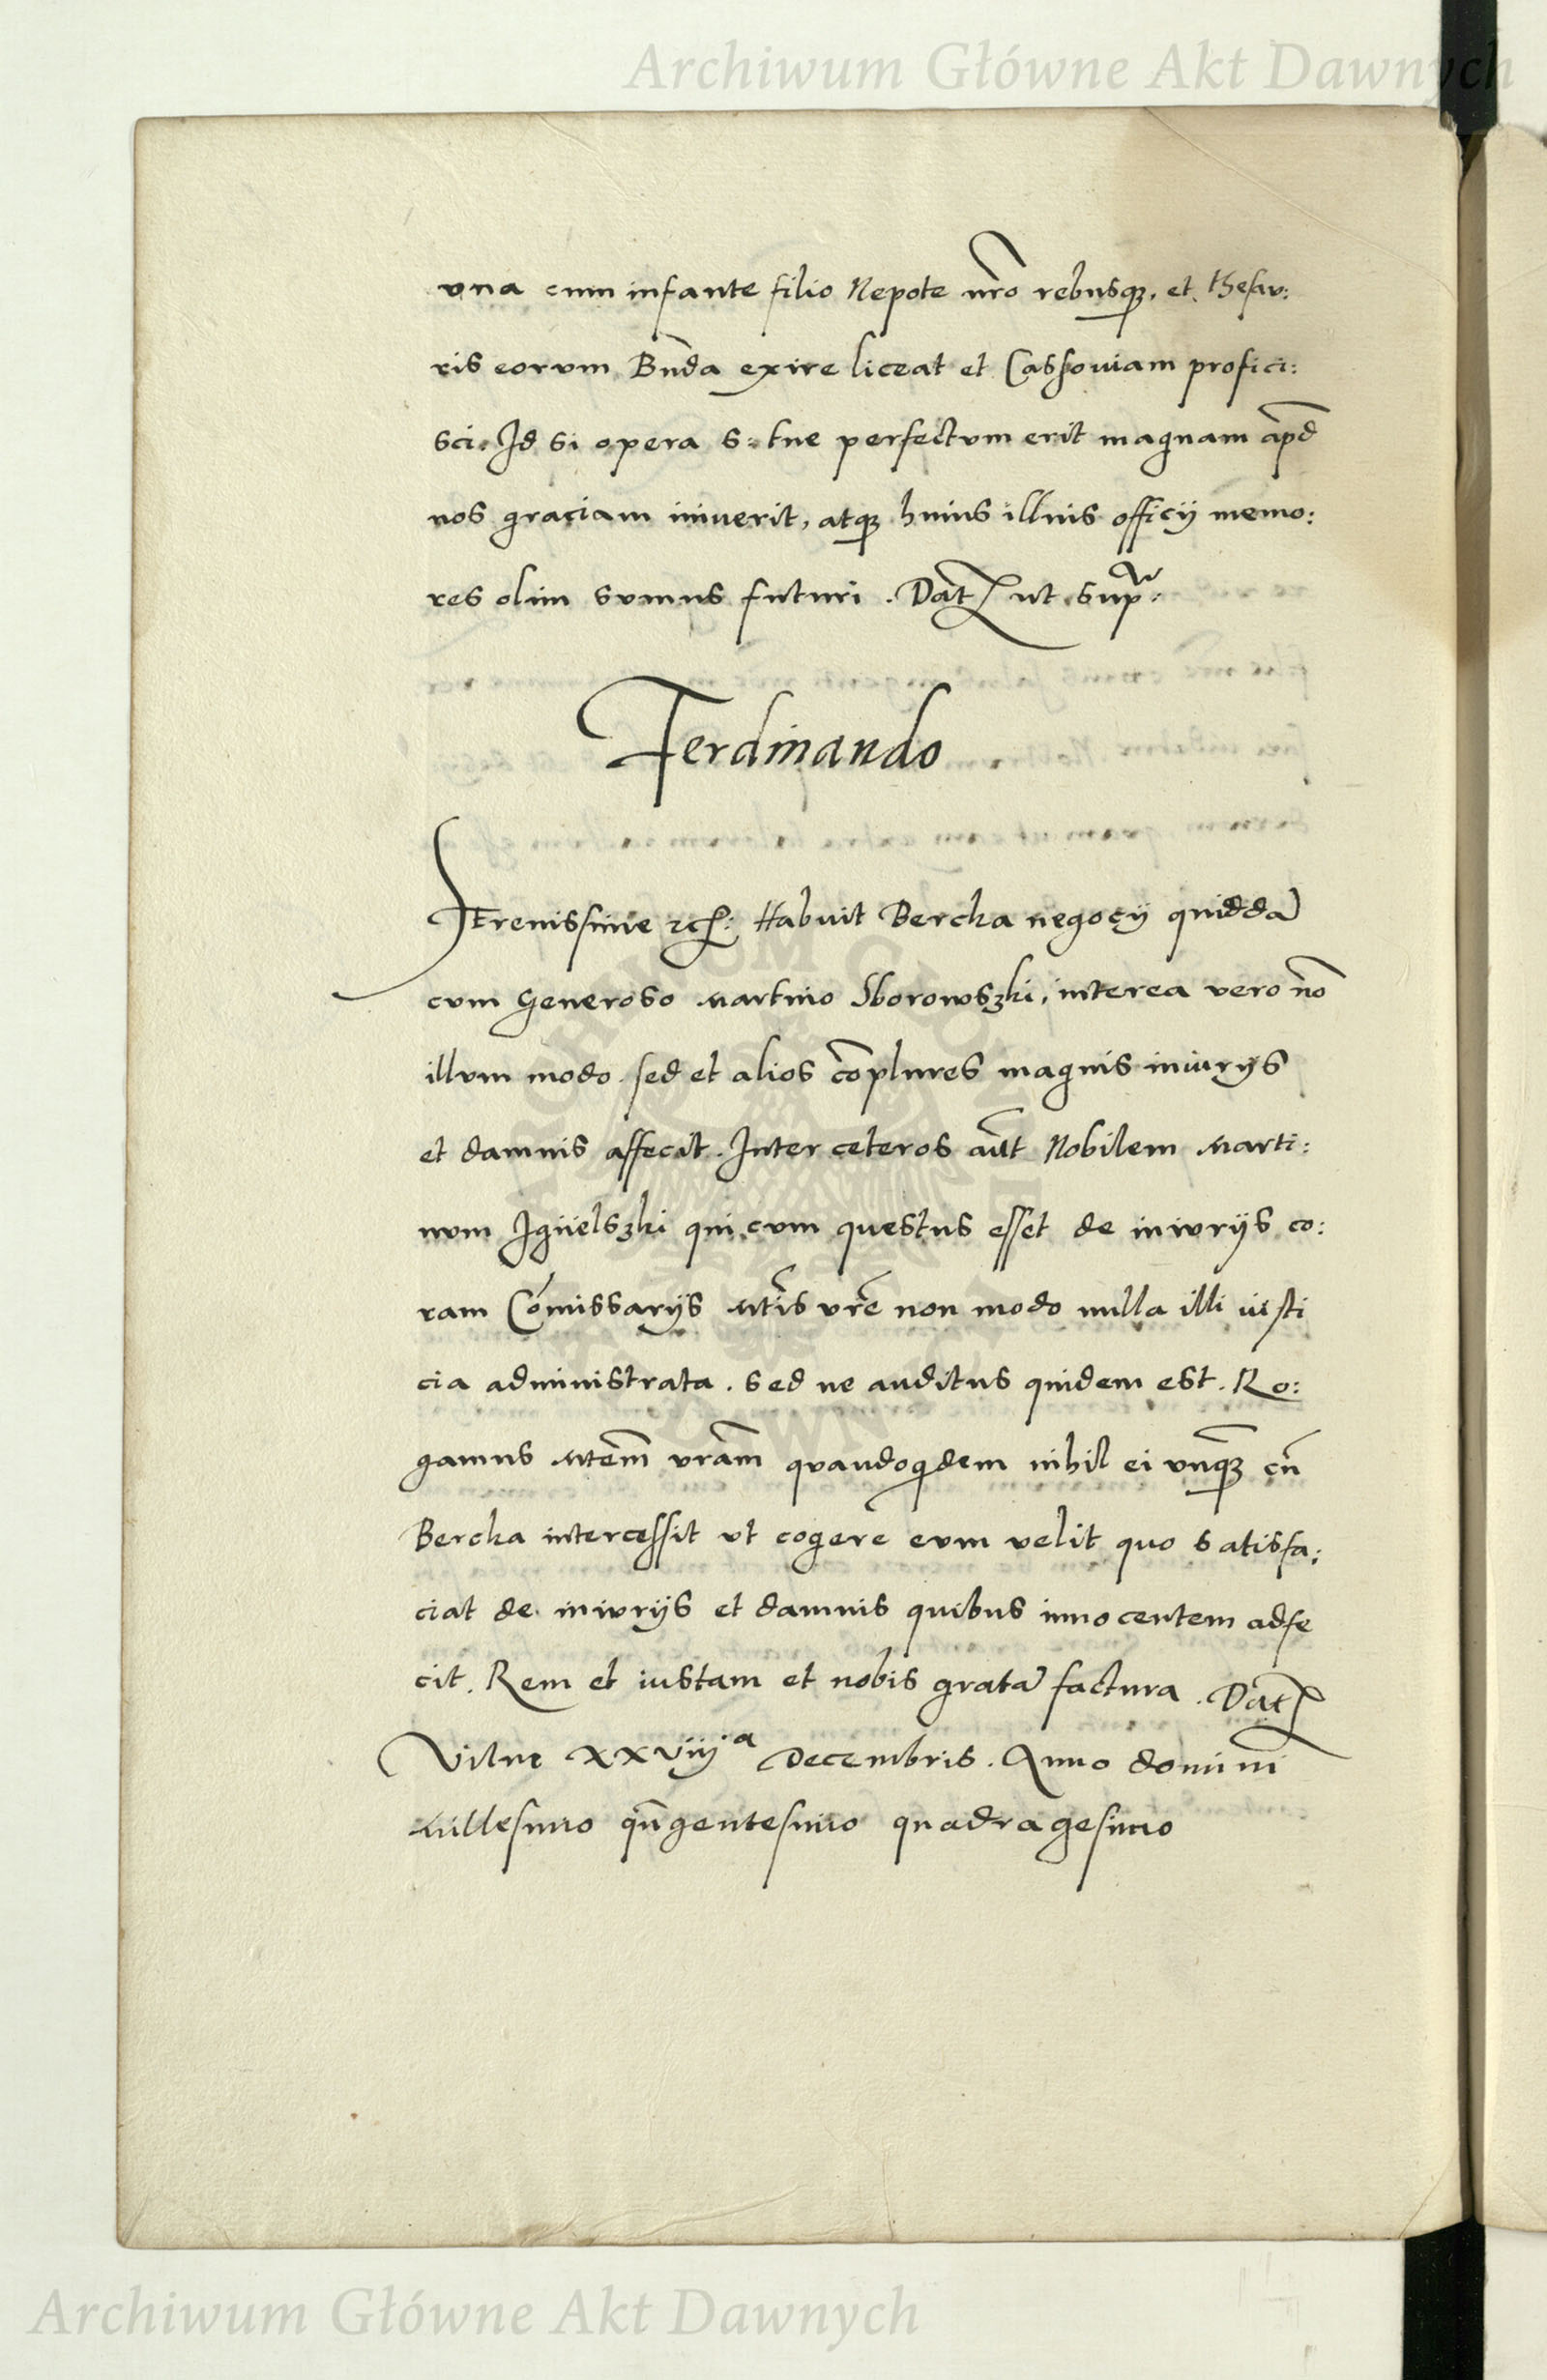 Archiwum Główne Akt Dawnych
vna cum infante filio Nepote nr̃o rebusq₃, et thesau:
ris eorum Buda exire liceat et Cassouiam profici:
sci. Id si opera s: tue perfectum erit magnam apd̃
nos graciam iniuerit, atq₃ huius illius officij memo:
res olim sumus futuri. Dat̃ ut sup̃ᵃ.
Ferdinando
Serenissime ꝛc̃: Habuit Bercka negocij quiddã
cum Generoso Martino Sborowszki, interea vero nõ
illum modo sed et alios cõplures magnis iniurijs
et damnis affecit. Inter ceteros aũt Nobilem Marti:
num Igüelszki qui cum questus esset de iniurijs co:
ram Cõmissarijs Mt̃is vr̃e non modo nulla illi iusti
cia administrata. sed ne auditus quidem est. Ro:
gamus Mtem̃ vrãm quandoqͥdem nihil ei vnq̃₃ cũ
Bercka intercessit vt cogere eum velit quo satisfa:
ciat de iniurijs et damnis quibus innocentem adfe
cit. Rem et iustam et nobis gratã factura. Dat̃
Vilne XXViijᵃ Decembris. Anno domini
Millesimo qũgentesimo quadragesimo
Archiwum Główne Akt Dawnych